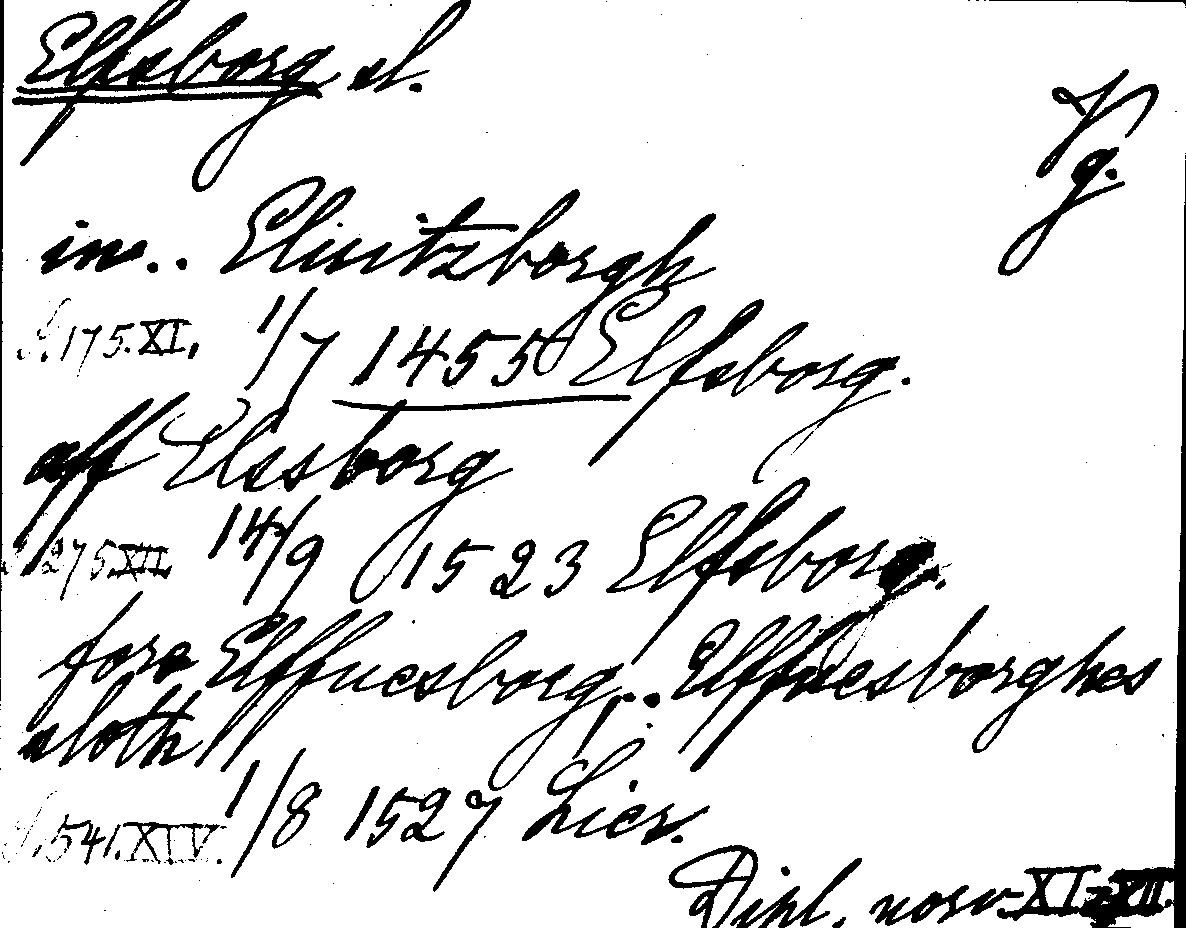 Elfsborg sl.
Vg.
in.. Eluitzborgh
S. 175. XI. 1/7 1455 Elfsborg.
aff Elssborg
S. 275 XII. 14/9 1523 Elfsborg.
fore Elffuesborg... Elffuesborghes
sloth
S. 541. XIV. 1/8 1527 Lier.
Dipl. norv. XI